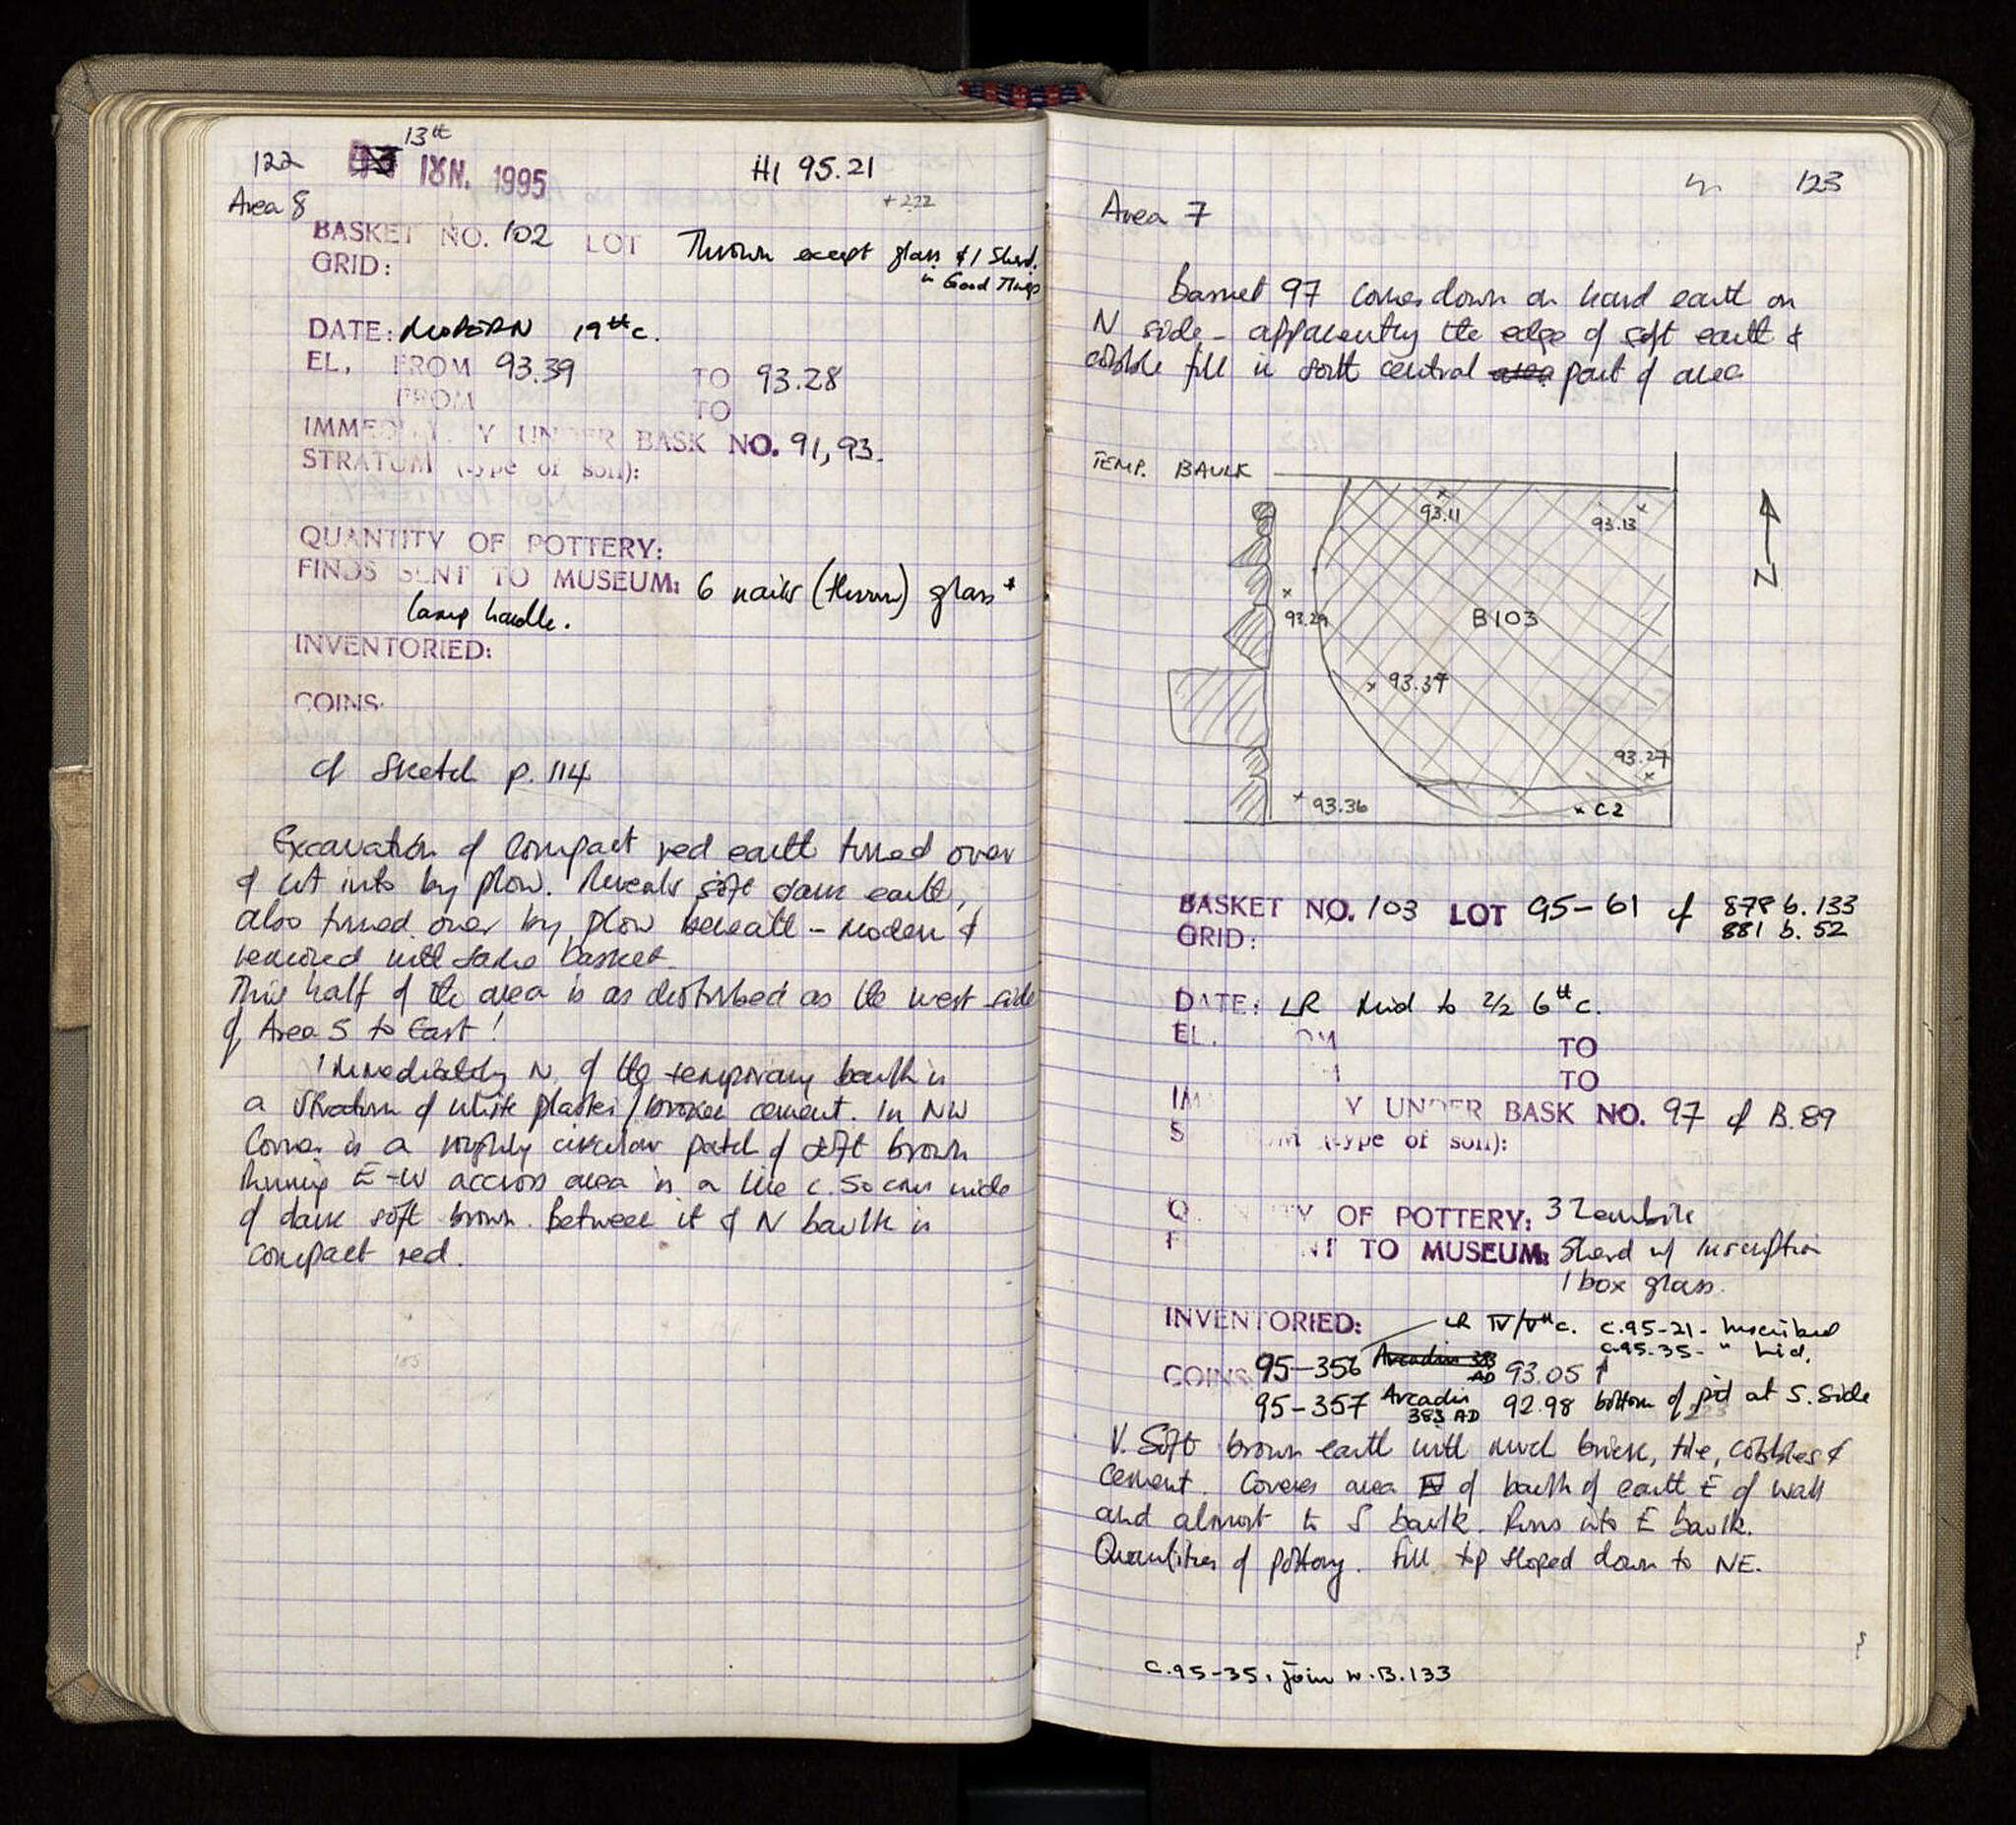 122
13th
JUN. 1995
H1 95.21
Area 8
+ 222
BASKET NO. 102 LOT Thrown except glass & 1 sherd.
in Good Things
GRID:
DATE: MODERN 19th c.
EL. FROM 93.39 TO 93.28
FROM TO
IMMED Y UNDER BASK NO. 91, 93.
STRATUM (type of soil):
QUANTITY OF POTTERY:
FINDS SENT TO MUSEUM: 6 nails (thrown) glass +
lamp handle.
INVENTORIED:
COINS:
cf sketch p. 114
Excavation of compact red earth turned over
& cut into by plow. Reveals soft dark earth,
also turned over by plow beneath - modern &
removed with same basket.
This half of the area is as disturbed as the west side
of Area 5 to East!
Immediately N. of the temporary baulk is
a stratum of white plaster/broken cement. In NW
Corner is a roughly circular patch of soft brown
Running E-W accross area is a line c. 50 cms wide
of dark soft brown. Between it & N baulk is
compact red.
123
Area 7
basket 97 comes down on hard earth on
N side - apparently the edge of soft earth &
cobble fill in south central area part of area
TEMP. BAULK
93.11
93.13
93.29
B103
93.37
93.27
93.36
C2
N
BASKET NO. 103 LOT 95-61 cf 879 b. 133
881 b. 52
GRID:
DATE: LR Mid to 2/2 6th c.
EL. OM TO
TO
IM Y UNDER BASK NO. 97 cf B. 89
S UM (type of soil):
Q TY OF POTTERY: 3 Zembili
F NT TO MUSEUM: Sherd w/ Inscription
1 box glass.
INVENTORIED: LR IV/Vth c. C.95-21- Inscribed
C.95.35- " Lid.
COINS 95-356 Arcadius 383 AD 93.05
95-357 Arcadius 383 AD 92.98 bottom of pit at S. Side
V. Soft brown earth with much brick, tile, cobbles &
cement. Covers area N of baulk of earth E of wall
and almost to S baulk. Runs into E baulk.
Quantities of pottery. Fill top sloped down to NE.
C.95-35. join w. B.133